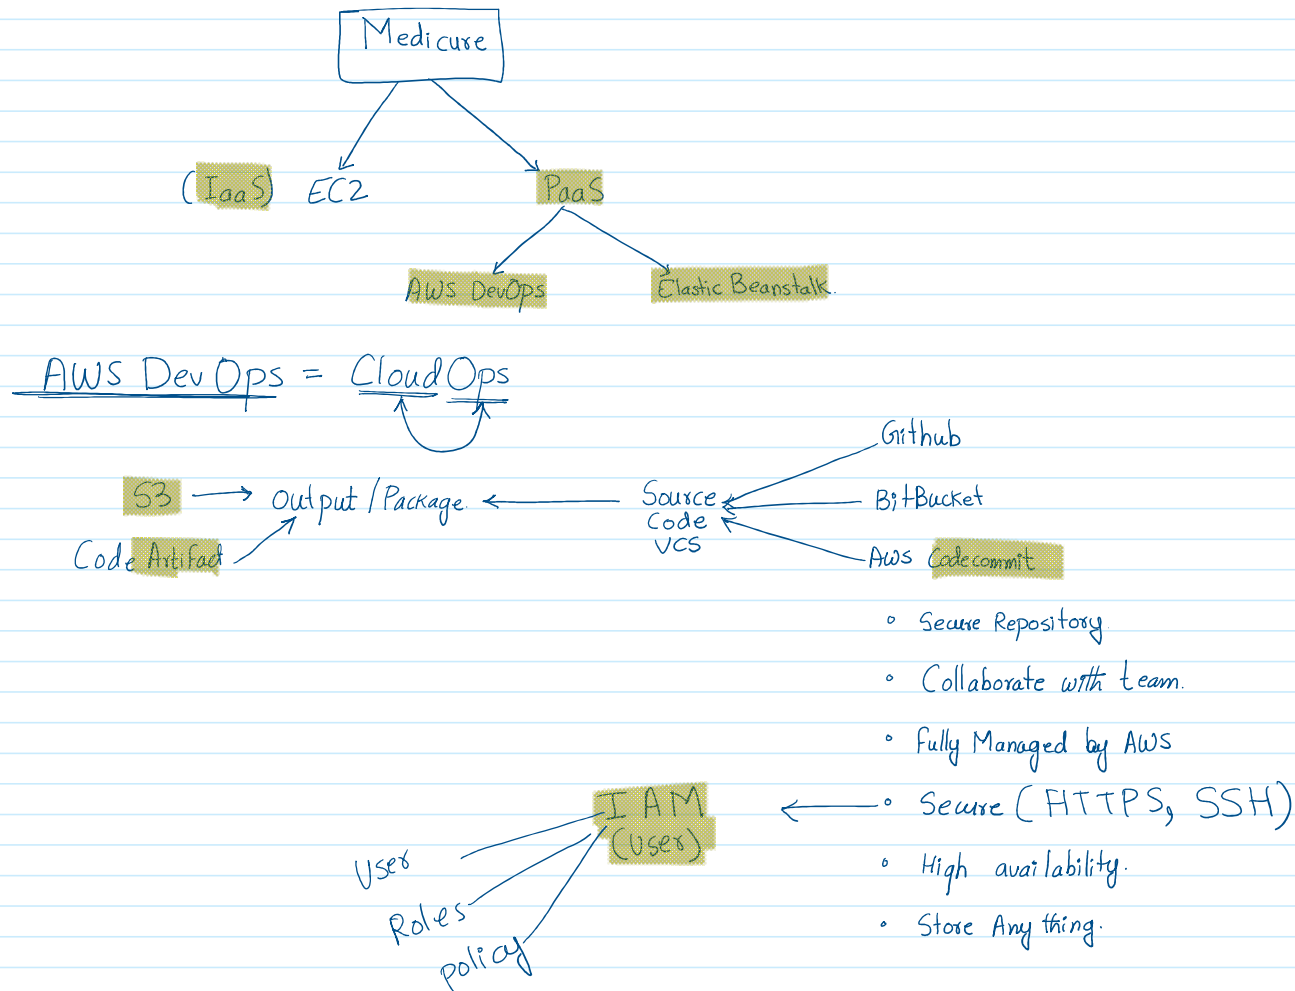 Medicure
(IaaS) EC2 PaaS
AWS DevOps Elastic Beanstalk.
AWS DevOps = CloudOps
Github
S3 Output/Package. Source BitBucket
Code
VCS
Code Artifact AWS Codecommit
• Secure Repository.
• Collaborate with team.
• Fully Managed by AWS
IAM • Secure (HTTPS, SSH)
(User)
User • High availability.
Roles • Store Any thing.
policy